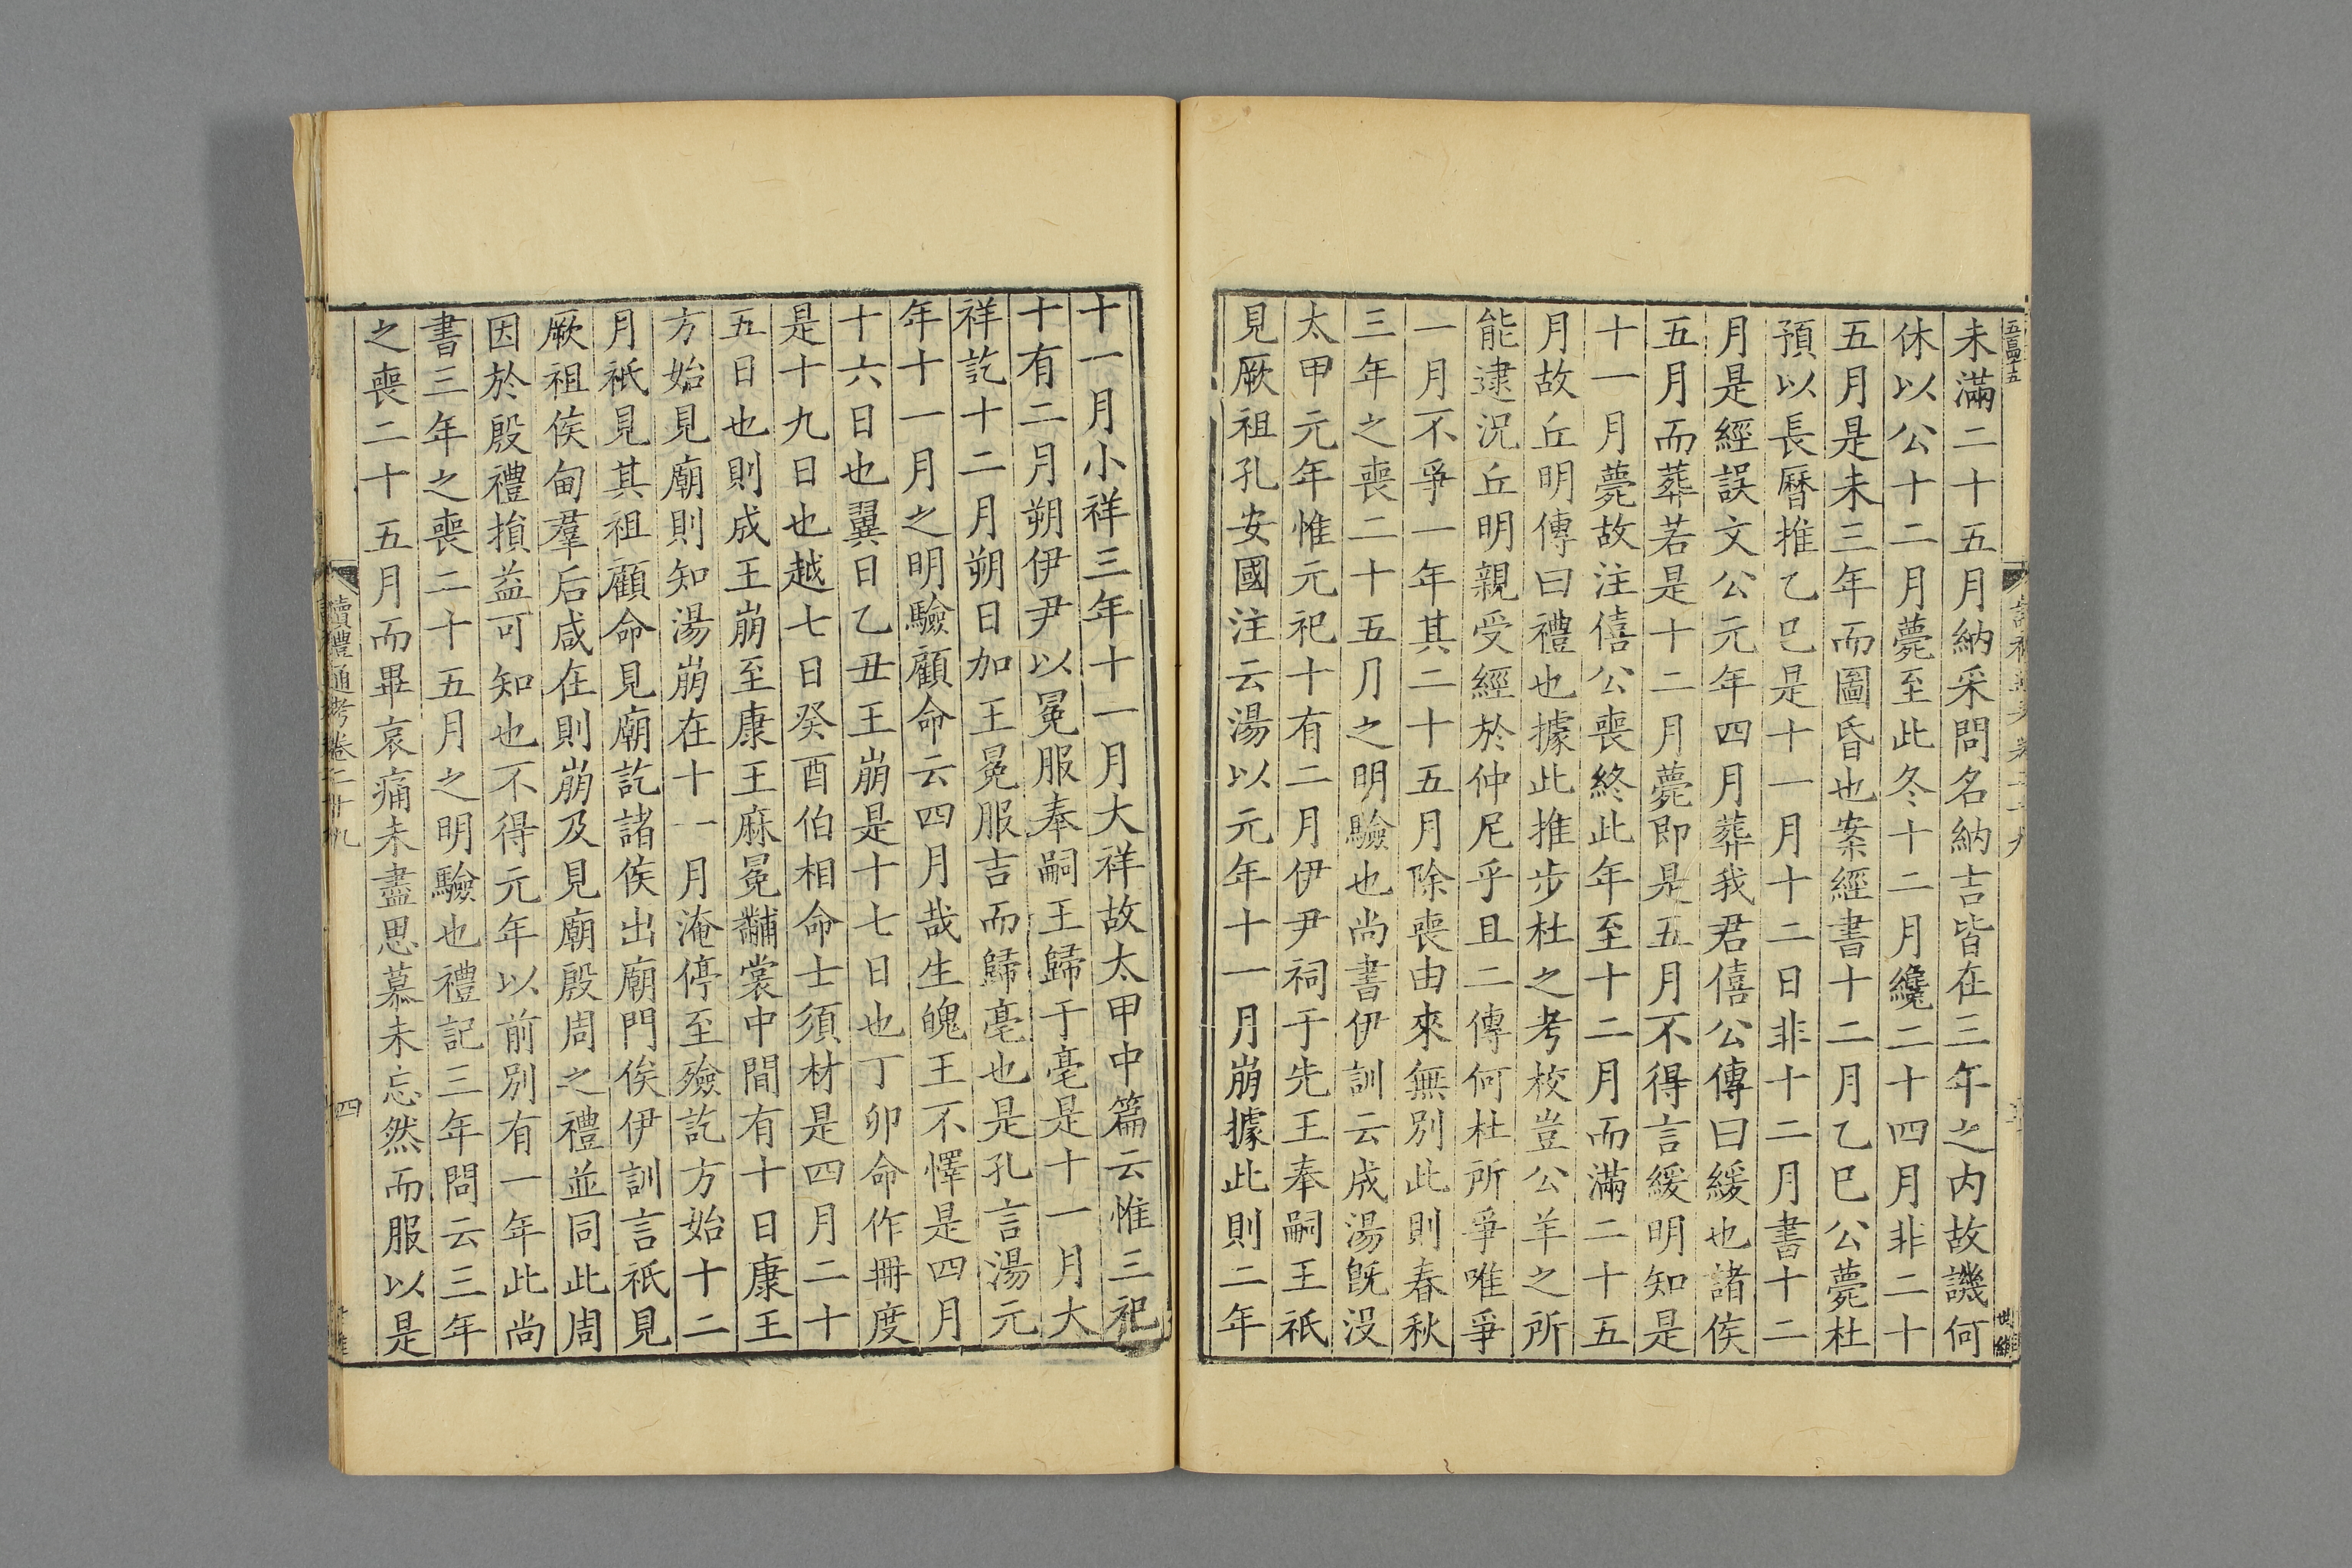 五百四十五
未滿二十五月納采問名納吉皆在三年之内故譏何
休以公十二月薨至此冬十二月纔二十四月非二十
五月是未三年而圖昏也案經書十二月乙巳公薨杜
預以長曆推乙巳是十一月十二日非十二月書十二
月是經誤文公元年四月葬我君僖公傳曰緩也諸侯
五月而葬若是十二月薨即是五月不得言緩明知是
十一月薨故注僖公喪終此年至十二月而滿二十五
月故丘明傳曰禮也據此推步杜之考校豈公羊之所
能逮況丘明親受經於仲尼乎且二傳何杜所爭唯爭
一月不爭一年其二十五月除喪由來無別此則春秋
三年之喪二十五月之明驗也尚書伊訓云成湯旣沒
太甲元年惟元祀十有二月伊尹祠于先王奉嗣王祇
見厥祖孔安國注云湯以元年十一月崩據此則二年
十一月小祥三年十一月大祥故太甲中篇云惟三祀
十有二月朔伊尹以冕服奉嗣王歸于亳是十一月大
祥訖十二月朔日加王冕服吉而歸亳也是孔言湯元
年十一月之明驗顧命云四月哉生魄王不懌是四月
十六日也翼日乙丑王崩是十七日也丁卯命作冊度
是十九日也越七日癸酉伯相命士須材是四月二十
五日也則成王崩至康王麻冕黼裳中間有十日康王
方始見廟則知湯崩在十一月淹停至殮訖方始十二
月祇見其祖顧命見廟訖諸侯出廟門俟伊訓言祇見
厥祖侯甸羣后咸在則崩及見廟殷周之禮並同此周
因於殷禮損益可知也不得元年以前別有一年此尚
書三年之喪二十五月之明驗也禮記三年問云三年
之喪二十五月而畢哀痛未盡思慕未忘然而服以是
讀禮通考卷二十九
四